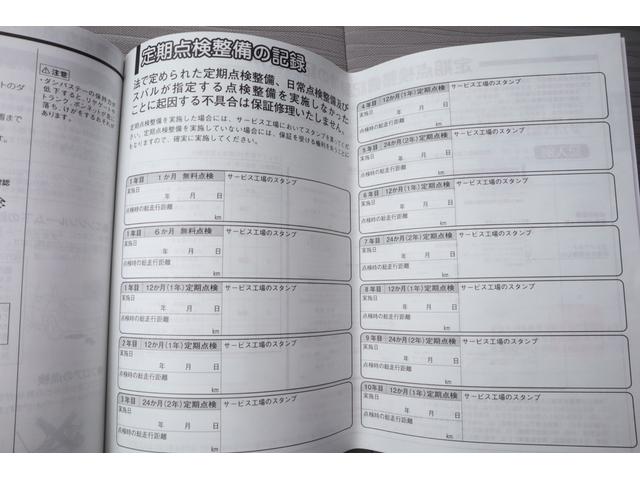 ⚠注意
・ダンパステーの保持力が
低下すると
トランク、ボンネットが
落ち、けがをするおそれが
あります。
定期点検整備の記録
法で定められた定期点検整備、日常点検整備及び
スバルが指定する点検整備を実施しなかった
ことに起因する不具合は保証修理いたしません。
定期点検整備を実施した場合には、サービス工場においてスタンプを
さい。定期点検整備を実施していない場合には、保証を受ける権利を失うことに
なりますので、確実に実施してください。
1年目 1か月 無料点検 サービス工場のスタンプ
実施日
年 月 日
点検時の総走行距離
km
1年目 6か月 無料点検 サービス工場のスタンプ
実施日
年 月 日
点検時の総走行距離
km
1年目 12か月(1年)定期点検 サービス工場のスタンプ
実施日
年 月 日
点検時の総走行距離
km
2年目 12か月(1年)定期点検 サービス工場のスタンプ
実施日
年 月 日
点検時の総走行距離
km
3年目 24か月(2年)定期点検 サービス工場のスタンプ
実施日
年 月 日
点検時の総走行距離
km
4年目 12か月(1年)定期点検 サービス工場のスタンプ
実施日
年 月 日
点検時の総走行距離
km
5年目 24か月(2年)定期点検 サービス工場のスタンプ
実施日
年 月 日
点検時の総走行距離
km
6年目 12か月(1年)定期点検 サービス工場のスタンプ
実施日
年 月 日
点検時の総走行距離
km
7年目 24か月(2年)定期点検 サービス工場のスタンプ
実施日
年 月 日
点検時の総走行距離
km
8年目 12か月(1年)定期点検 サービス工場のスタンプ
実施日
年 月 日
点検時の総走行距離
km
9年目 24か月(2年)定期点検 サービス工場のスタンプ
実施日
年 月 日
点検時の総走行距離
km
10年目 12か月(1年)定期点検 サービス工場のスタンプ
実施日
年 月 日
点検時の総走行距離
km